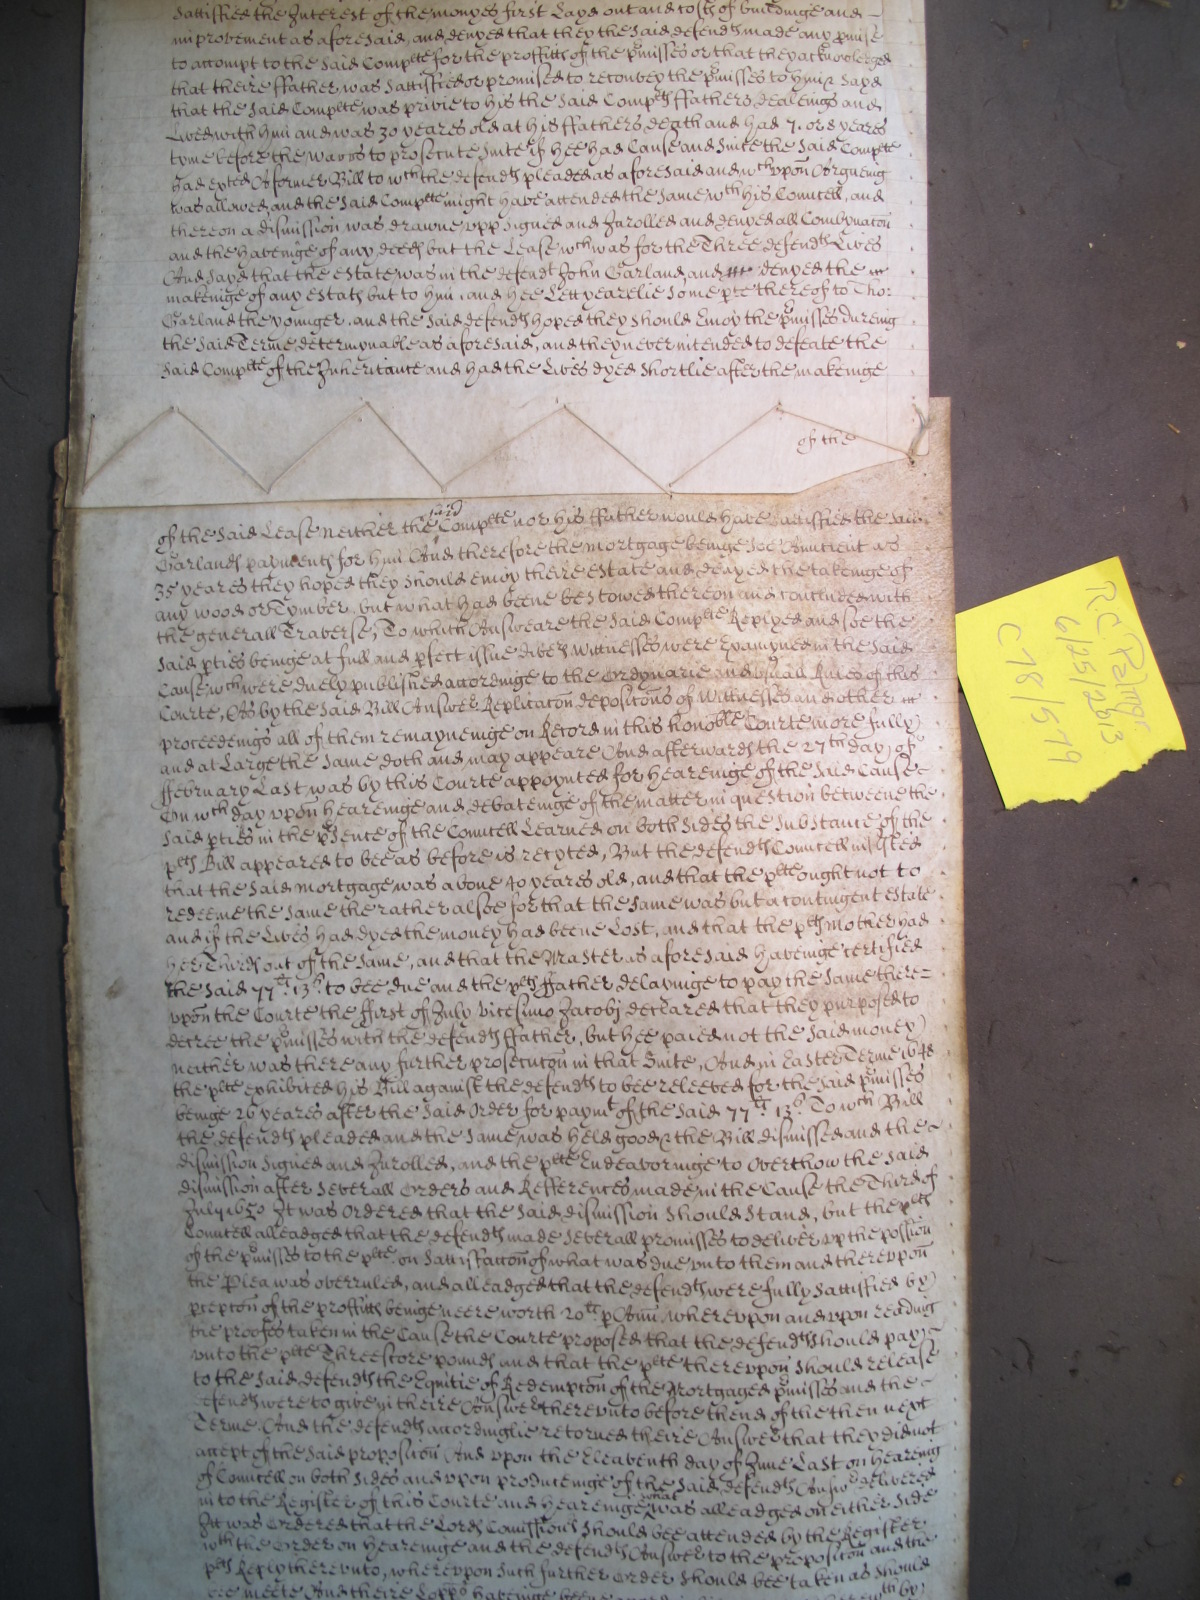 Sattisfied the Interest of the monyes first Layd out and costs of buildinge and
improvement as aforesaid, and denyed that they the said defendts made any pmise
to accompt to the said Complte for the proffitts of the pmisses or that they acknowledged
that theire ffather was sattisfied or promised to reconvey the pmisses to him & sayd
that the said Complte was privie to his the said Complts ffathers dealeings and
Lived with him and was 30 yeares old at his ffathers death and had 7. or 8 yeares
tyme before the warrs to prosecute suite if hee had Cause and since the said Complte
had exted A former Bill to wch the defendts pleaded as aforesaid and wch upon Argueing
was allowed, and the said Complte might have attended the same wth his Councell, and
thereon a dismission was drawne upp signed and Inrolled and denyed all Combynacon
and the haveinge of any deeds but the Lease wch was for the Three defendts Lives
And sayd that the estate was in the defendt John Garland and denyed the
makeinge of any estats but to him, and hee Lett yearelie some pte thereof to Tho:
Garland the younger, and the said defendts hoped they should enioy the pmisses dureing
the said Terme determynable as aforesaid, and they never intended to defeate the
said Complte of the Inheritance and had the Lives dyed shortlie after the makeinge
of the
of the said Lease neither the said Complte nor his ffather would have sattisfied the said
Garlands payments for him And therefore the mortgage beinge soe Auntient as
35 yeares they hoped they should enioy theire estate and denyed the takeinge of
any wood or Tymber but what had beene bestowed thereon and concluded with
the generall Traverse, To which Answeare the said Complte Replyed and soe the
said pties beinge at full and pfect issue divers wittnesses were Examyned in the said
Cause wch were duely published accordinge to the Ordynarie and usuall Rules of this
Courte, As by the said Bill Answer Replicacon deposicons of Wittnesses and other
proceedeings all of them remayneinge on Record in this honoble Courte more fully
and at Large the same doth and may appeare And afterwards the 27th day of
ffebruary Last was by this Courte appoynted for heareinge of the said Cause
On wch day upon heareinge and debateinge of the matter in question betweene the
said pties in the psence of the Councell Learned on both sides the substance of the
plts Bill appeared to bee as before is recyted, But the defendts Councell insisted
that the said mortgage was above 40 yeares old, and that the plte ought not to
redeeme the same the rather alsoe for that the same was but a contingent estate
and if the Lives had dyed the money had beene Lost, and that the plts mother had
her Thirds out of the same, and that the Master as aforesaid haveinge certified
the said 77li. 13s. to bee due and the plts ffather delayinge to pay the same there=
upon the Courte the ffirst of July vicesimo Jacobi declared that they purposed to
decree the pmisses with the defendts ffather, but hee paied not the said money
neither was there any further prosecucon in that Suite, And in Easter Terme 1648
the plte exhibited his Bill against the defendts to bee releeved for the said pmisses
beinge 26 yeares after the said Order for paymt of the said 77li. 13s. To wch Bill
the defendts pleaded and the same was held good & the Bill dismissed and the
dismission signed and Inrolled, and the plte Endeavoringe to Overthow the said
dismission after severall Orders and Refferences made in the Cause the Third of
July 1650 It was Ordered that the said dismission should stand, but the plts
Councell alleadged that the defendts made severall promisses to deliver up the possion
of the pmisses to the plte on sattisfaccon of what was due unto them and thereupon
the Plea was overruled, and alleadged that the defendts were fully sattisfied by
pcepcon of the proffitts beinge neere worth 20li p Ann, whereupon and upon reading
the proofes taken in the Cause the Courte proposed that the defendts should pay
unto the plte Threescore pounds and that the plte thereupon should release
to the said defendts the Equitie of Redempcon of the Mortgaged pmisses and the
defendts were to give in theire Answer thereunto before thend of the then next
Terme. And the defendts accordinglie retorned theire Answer that they did not
accept of the said proposicon And upon the Eleaventh day of June Last on heareing
of Councell on both sides and upon produceinge of the said defendts Answ delivered
in to the Register of this Courte and heareinge what was alleadged on either side
It was Ordered that the Lords Comissionrs should bee attended by the Register
wth the Order on heareinge and the defendts Answer to the proposicon and the
plts Reply thereunto, whereupon such further Order should bee taken as should
bee meete And theire Lopps haveinge beene
R.C. Palmer
6/25/2013
C78/579